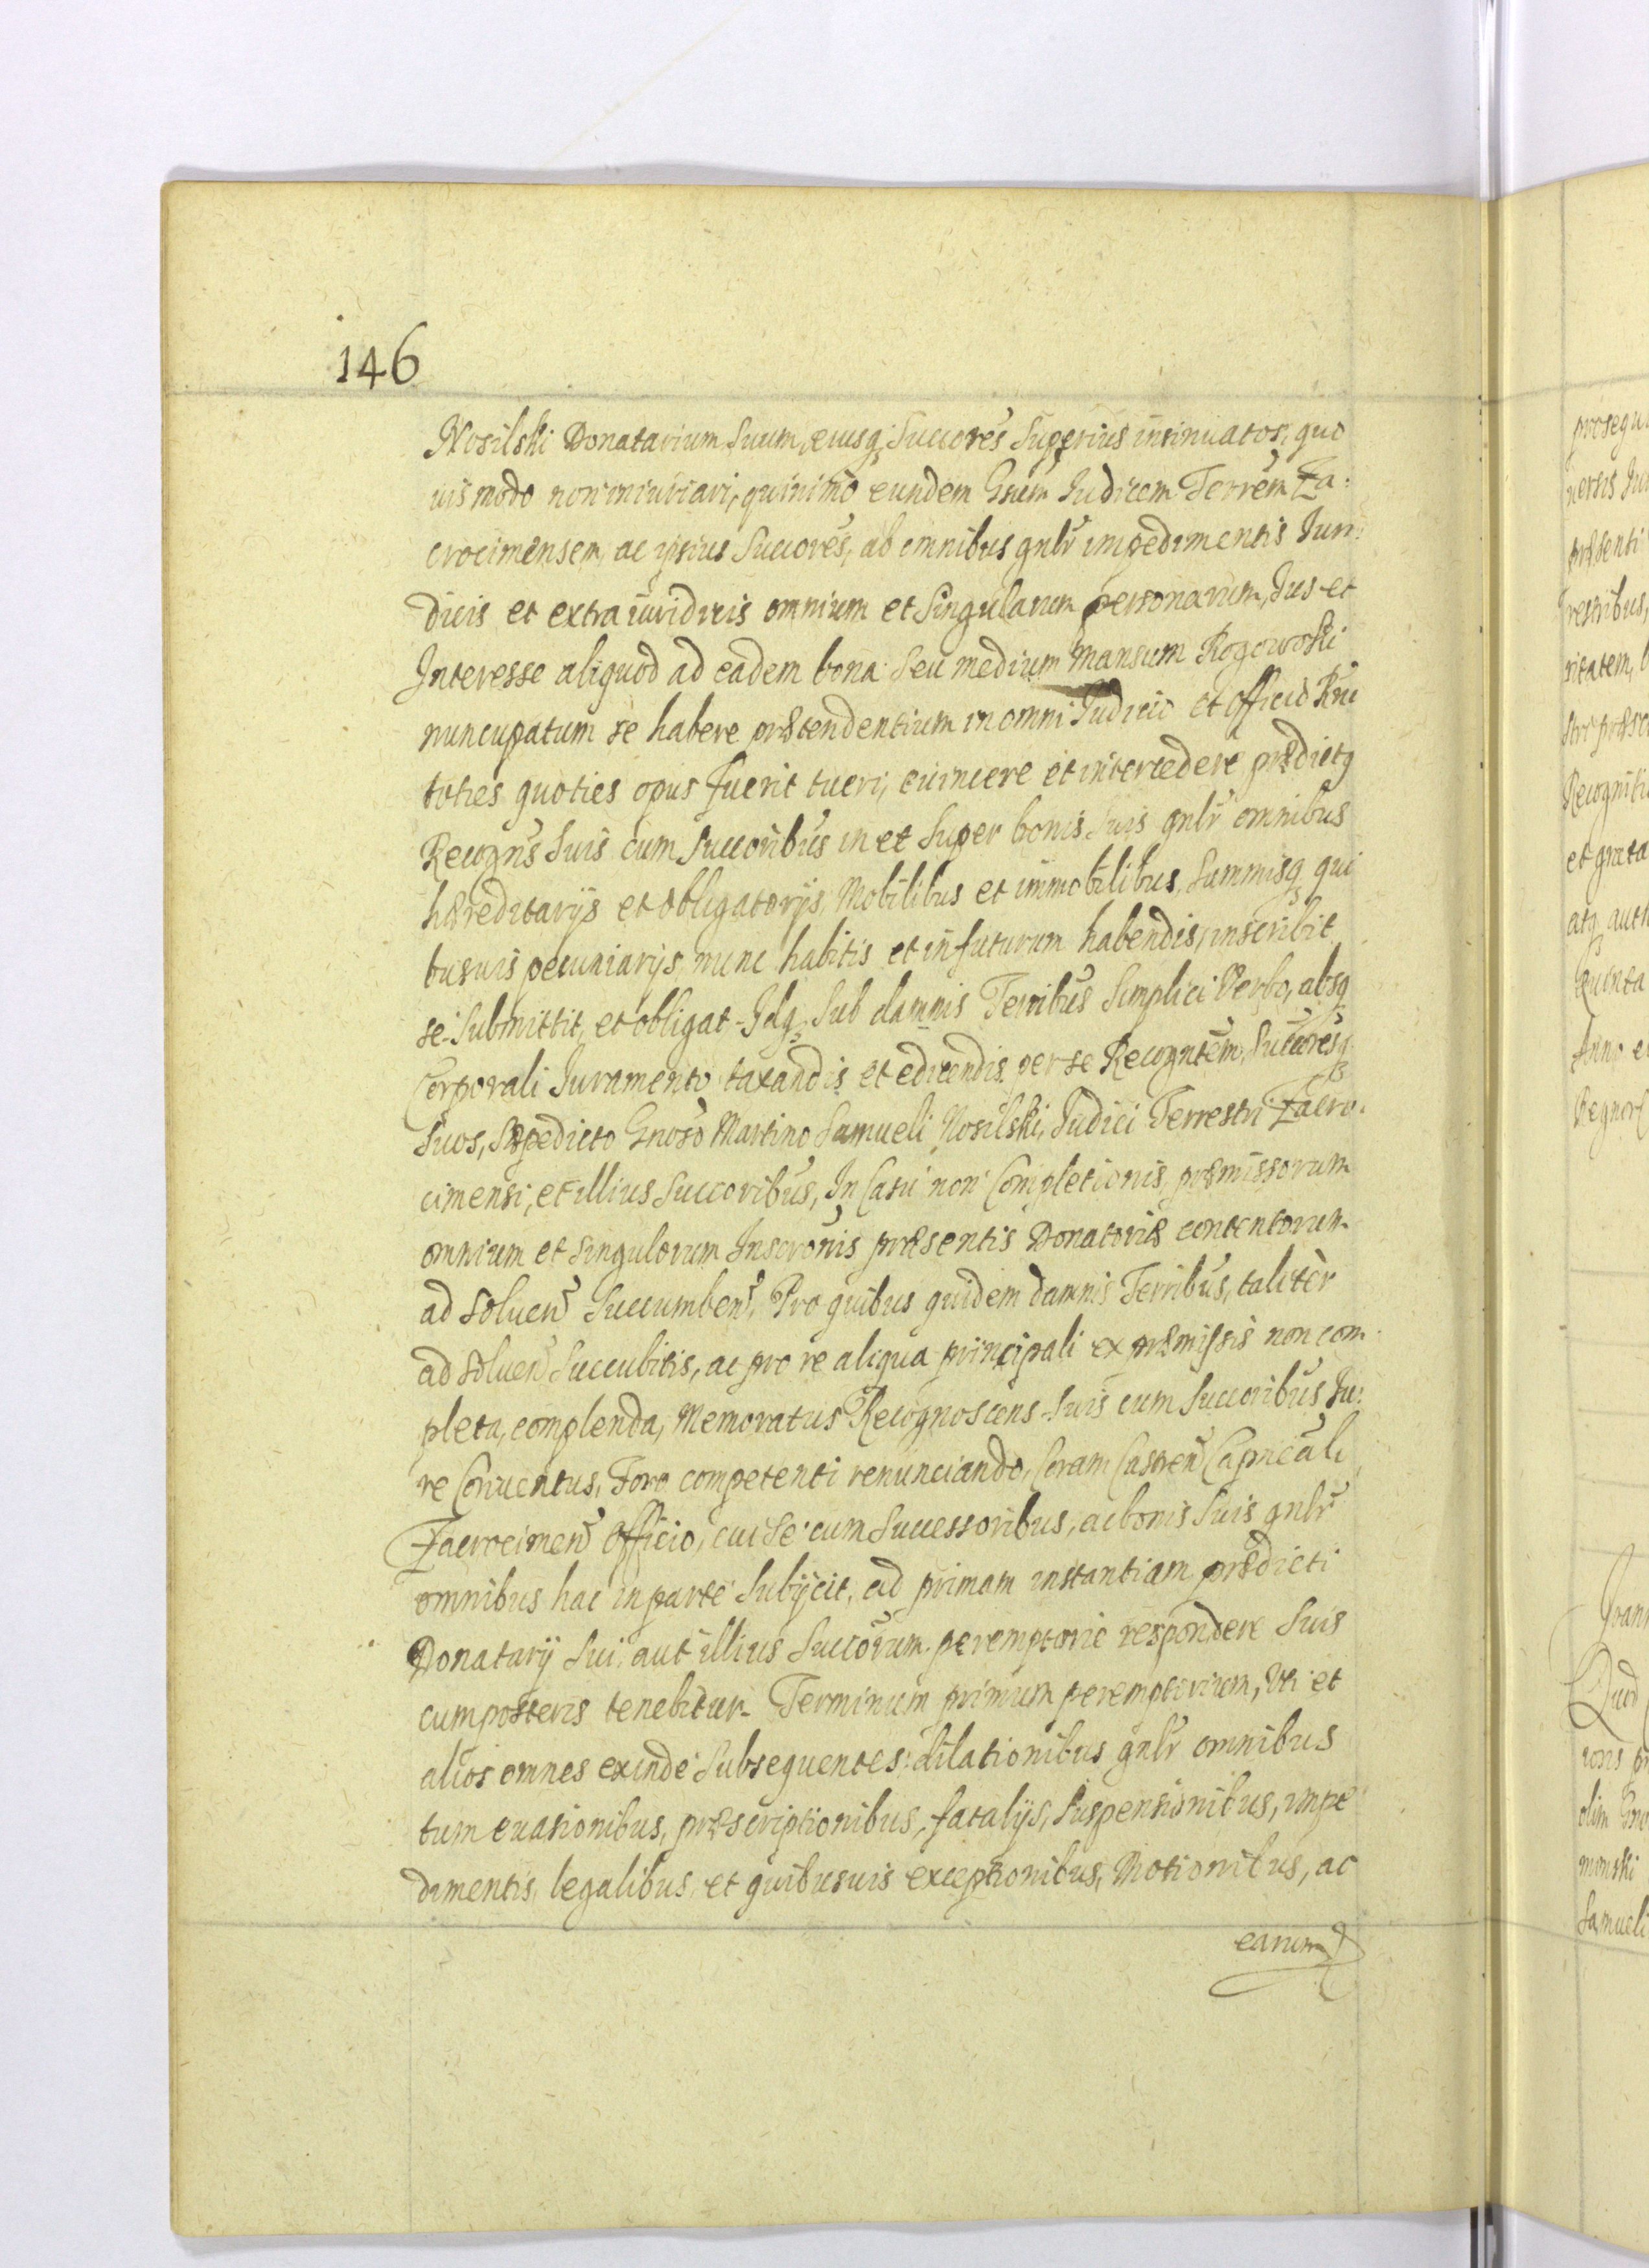 146
Nosilski Donatarium Suum, eiusq; Succores Superius insinuatos, quo
uis modo non iniuriari, quinimo eundem Gnsum Judicem Terrem Za:
crocimensem, ac ipsius Succores, ab omnibus gnlr impedimentis Juri:
dicis et extraiuridicis omnium et Singularum personarum, Jus et
Interesse aliquod ad eadem bona Seu medium Mansum Rogowski
nuncupatum se habere prætendentium in omni Judicio et officio Rni
toties quoties opus fuerit tueri, euincere et intercedere prædictq
Recogns Suis cum Succoribus in et Super bonis Suis gnlr omnibus
hæreditarijs et obligatorijs, Mobilibus et immobilibus, Summisq; qui
busuis pecuniarijs, nunc habitis et in futurum habendis, inscribit
se Submittit, et obligat. Idq; Sub damnis Terribus Simplici Verbo, absq;
Corporali Juramento taxandis et edicendis per se Recogntem, Succoresq;
Suos, Sæpedicto Gnoso Martino Samueli Nosilski, Judici Terrestri Zacro:
cimensi, et illius Succoribus, In Casu non Completionis præmissorum
omnium et Singulorum Inscronis præsentis Donatoriæ contentorum
ad Soluen Succumben, Pro quibus quidem damnis Terribus, taliter
ad Soluen Succubitis, ac pro re aliqua principali ex præmissis non com:
pleta, complenda, Memoratus Recognoscens Suis cum Succoribus Ju:
re Conuentus, Foro competenti renunciando, Coram Castren Capneali
Zacrocimen Officio, cui Se cum Successoribus, ac bonis Suis gnlr
omnibus hac in parte Subijcit, ad primam instantiam prædicti
Donatarij Sui, aut illius Succorum peremptorie respondere Suis
cum posteris tenebitur. Terminum primum peremptorium, Uti et
alios omnes exinde Subsequentes, dilationibus gnlr omnibus
tum euasionibus, præscriptionibus, fatalijs, Suspensionibus, impe
dimentis legalibus, et quibusuis exceptionibus, Motionibus, ac
earum